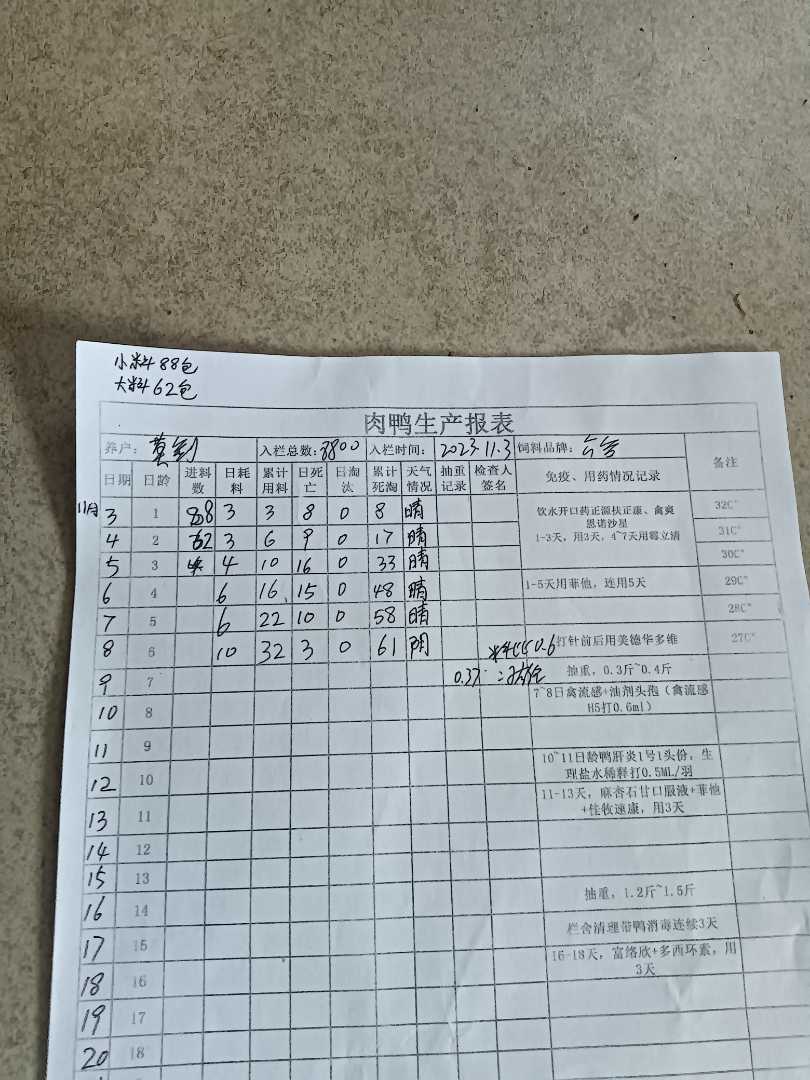 小料88包
大料62包
肉鸭生产报表
养户: 入栏总数:3800 入栏时间: 2023.11.3 饲料品牌: 备注
日期 日龄 进料数 日耗料 累计用料 日死亡 日淘汰 累计死淘 天气情况 抽重记录 检查人签名 免疫、用药情况记录
11月
3 1 88 3 3 8 0 8 晴 饮水开口药正源扶正康、禽爽 32C°
恩诺沙星
4 2 62 3 6 9 0 17 晴 1-3天,用3天,4~7天用霉立清 31C°
5 3 4 10 16 0 33 晴 30C°
6 4 6 16 15 0 48 晴 1-5天用菲他,连用5天 29C°
7 5 6 22 10 0 58 晴 28C°
8 6 10 32 3 0 61 阴 打针前后用美德华多维 27C°
9 7 抽重,0.3斤~0.4斤
10 8 7~8日禽流感+油剂头孢(禽流感
H5打0.6ml)
11 9
12 10 10~11日龄鸭肝炎1号1头份,生
理盐水稀释打0.5ML/羽
13 11 11-13天,麻杏石甘口服液+菲他
+佳牧速康,用3天
14 12
15 13
16 14 抽重,1.2斤~1.5斤
17 15 栏舍清理带鸭消毒连续3天
18 16 16-18天,富络欣+多西环素,用
3天
19 17
20 18